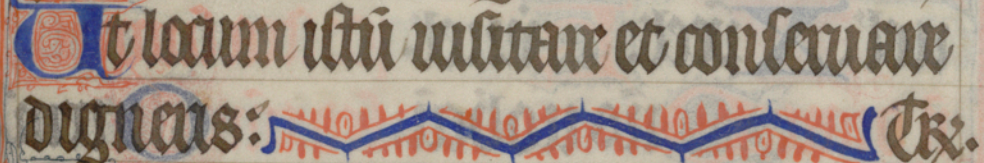 Ut locum istū uisitare et conseruare
digneris: Te r̄.